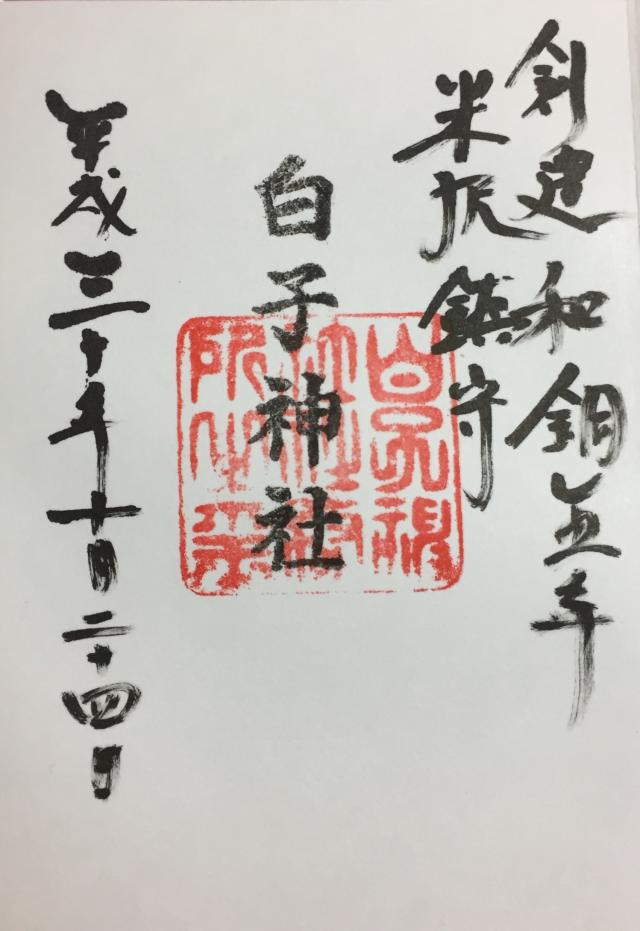 創建和銅五年
米沢鎮守
白子神社
平成三十年十月二十四日